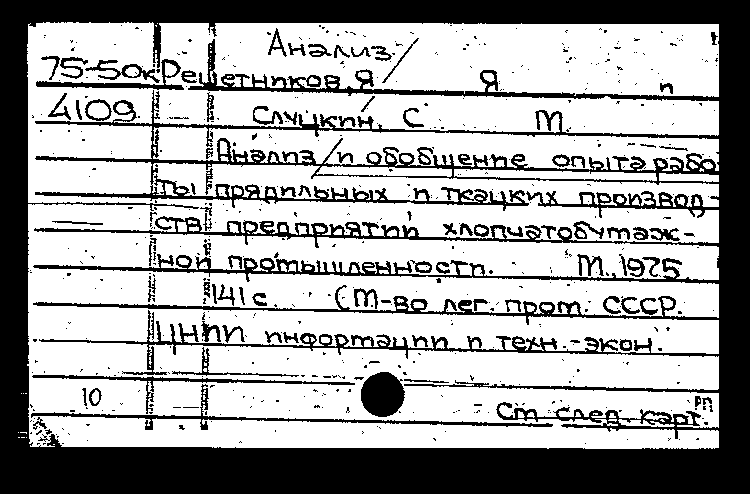 Анализ/
75-50к Решетников, Я Я п
4109 Слуцкин, С М
Анализ/и обобщение опыта рабо
ты прядильных и ткацких производ-
ств предприятий хлопчатобумаж-
ной промышленности. М., 1975
141 с. (М-во лег. пром. СССР.
ЦНИИ информации и техн.-экон.
10
рп
См след. карт.